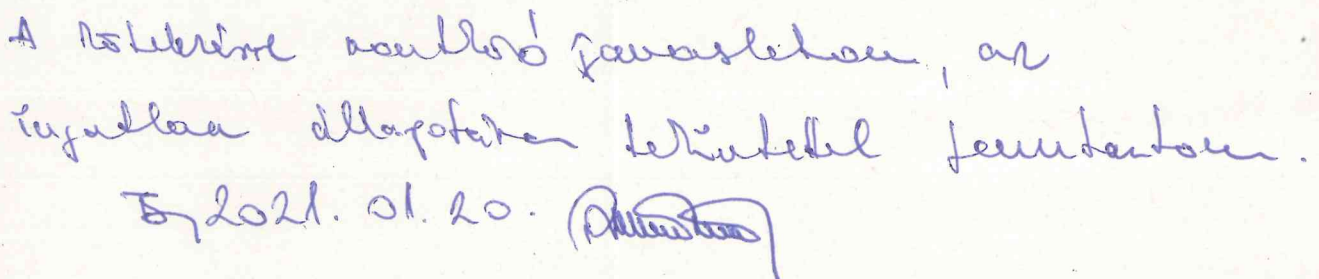 A kötelezésre vonatkozó javaslatom, az
ingatlan állapotára tekintettel fenntartom.
2021. 01. 20.